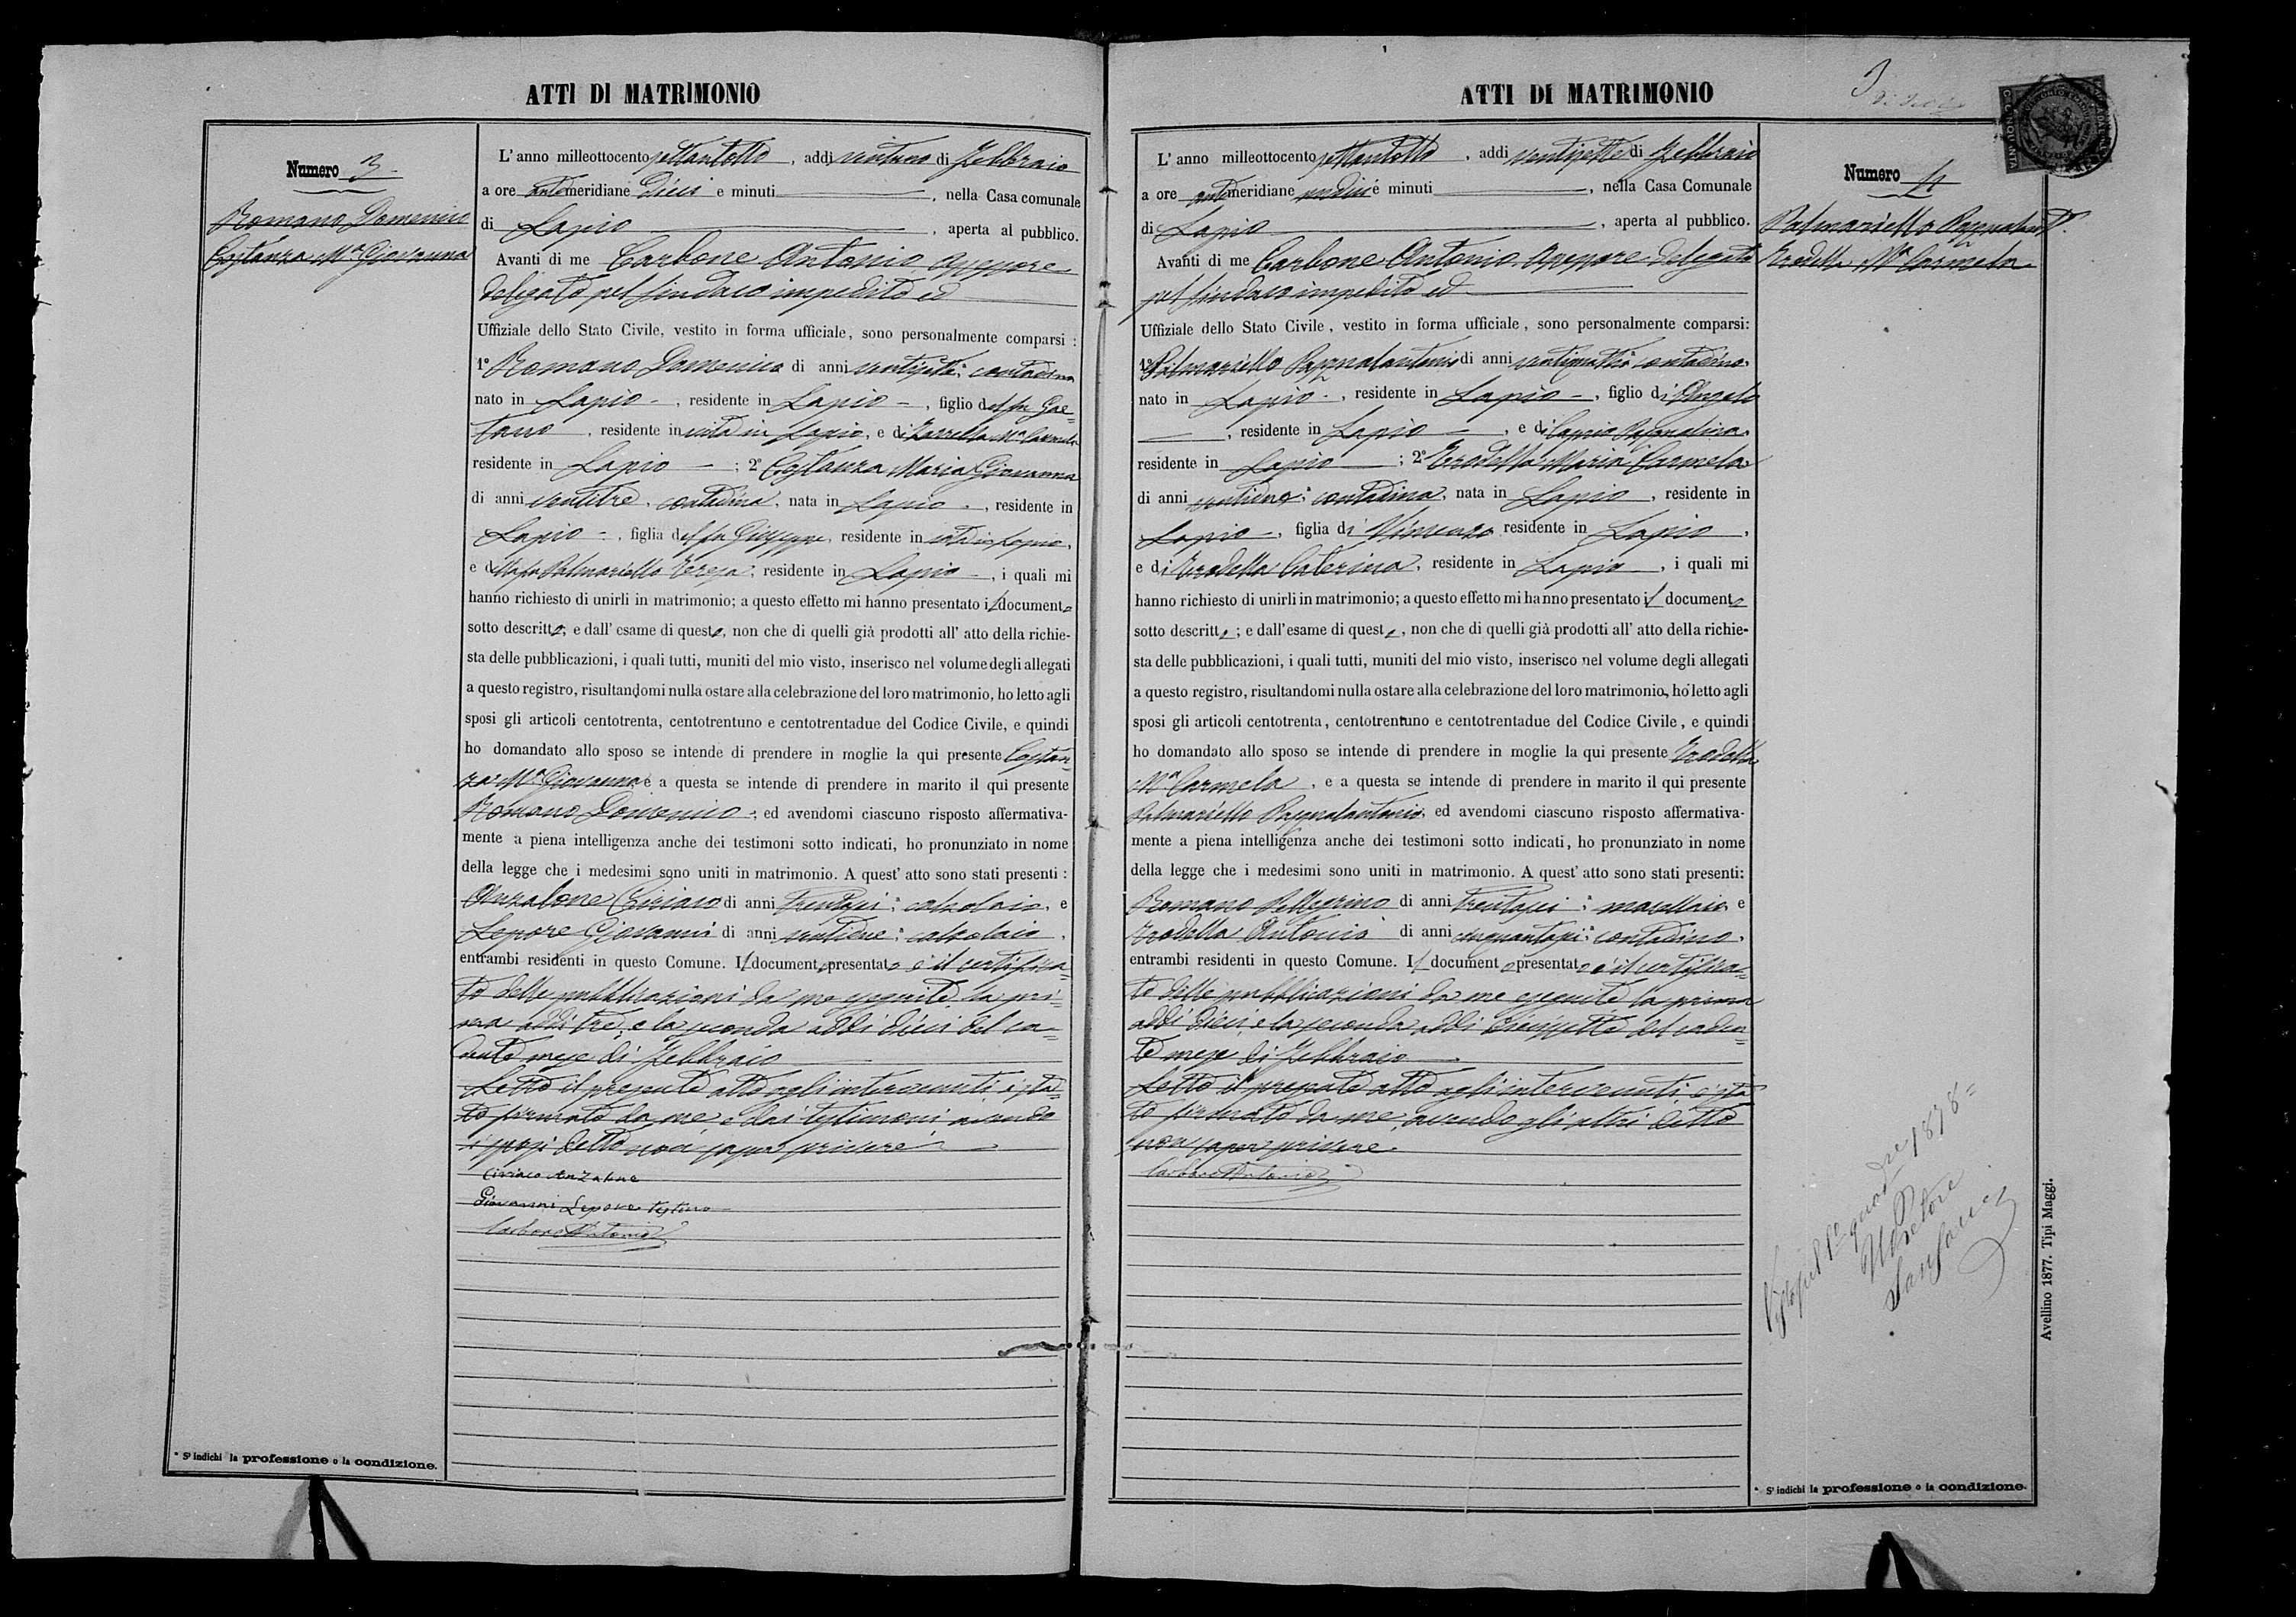 ATTI DI MATRIMONIO
Numero 3
Romano Domenico
Costanza Mª Giovanna
L'anno milleottocento settantotto, addì ventuno di Febbraio
a ore antemeridiane dieci e minuti, nella Casa comunale
di Lapio, aperta al pubblico.
Avanti di me Carbone Antonio Assessore
delegato pel sindaco impedito ed
Uffiziale dello Stato Civile, vestito in forma ufficiale, sono personalmente comparsi:
1º Romano Domenico di anni ventisette: contadino
nato in Lapio, residente in Lapio, figlio del fu Gae=
tano, residente in vita in Lapio, e di Zarrella Mª Carmela
residente in Lapio; 2º Costanza Maria Giovanna
di anni ventitre, contadina, nata in Lapio, residente in
Lapio, figlia del fu Giuseppe, residente in vita in Lapio,
e della fu Palmariello Teresa; residente in Lapio, i quali mi
hanno richiesto di unirli in matrimonio; a questo effetto mi hanno presentato il documento
sotto descritto; e dall'esame di questo, non che di quelli già prodotti all'atto della richie-
sta delle pubblicazioni, i quali tutti, muniti del mio visto, inserisco nel volume degli allegati
a questo registro, risultandomi nulla ostare alla celebrazione del loro matrimonio, ho letto agli
sposi gli articoli centotrenta, centotrentuno e centotrentadue del Codice Civile, e quindi
ho domandato allo sposo se intende di prendere in moglie la qui presente Costan=
za Mª Giovanna e a questa se intende di prendere in marito il qui presente
Romano Domenico; ed avendomi ciascuno risposto affermativa-
mente a piena intelligenza anche dei testimoni sotto indicati, ho pronunziato in nome
della legge che i medesimi sono uniti in matrimonio. A quest'atto sono stati presenti:
Anzalone Ciriaco di anni trentasei: calzolaio, e
Lepore Giovanni di anni ventidue: calzolaio,
entrambi residenti in questo Comune. Il documento presentato è il certifica=
to delle pubblicazioni da me eseguite la pri=
ma addì tre, e la seconda addì dieci del ca=
dente mese di Febbraio
Letto il presente atto agli intervenuti è sta=
to firmato da me e dai testimoni avendo
i sposi detto non saper scrivere
Ciriaco Anzalone
Giovanni Lepore testimo
Carbone Antonio
* S'indichi la professione o la condizione.
ATTI DI MATRIMONIO
3
Numero 4
Palmariello Pasqualant.º
Trodella Mª Carmela
L'anno milleottocento settantotto, addì ventisette di Febbraio
a ore antemeridiane undici e minuti, nella Casa Comunale
di Lapio, aperta al pubblico.
Avanti di me Carbone Antonio Assessore delegato
pel sindaco impedito ed
Uffiziale dello Stato Civile, vestito in forma ufficiale, sono personalmente comparsi:
1º Palmariello Pasqualantonio di anni ventiquattro contadino
nato in Lapio, residente in Lapio, figlio di Angelo
, residente in Lapio, e di Caprio Pasqualina
residente in Lapio; 2º Trodella Maria Carmela
di anni ventidue: contadina, nata in Lapio, residente in
Lapio, figlia di Vincenzo residente in Lapio,
e di Trodella Caterina, residente in Lapio, i quali mi
hanno richiesto di unirli in matrimonio; a questo effetto mi hanno presentato il documento
sotto descritto; e dall'esame di questo, non che di quelli già prodotti all'atto della richie-
sta delle pubblicazioni, i quali tutti, muniti del mio visto, inserisco nel volume degli allegati
a questo registro, risultandomi nulla ostare alla celebrazione del loro matrimonio, ho letto agli
sposi gli articoli centotrenta, centotrentuno e centotrentadue del Codice Civile, e quindi
ho domandato allo sposo se intende di prendere in moglie la qui presente Trodella
Mª Carmela, e a questa se intende di prendere in marito il qui presente
Palmariello Pasqualantonio, ed avendomi ciascuno risposto affermativa-
mente a piena intelligenza anche dei testimoni sotto indicati, ho pronunziato in nome
della legge che i medesimi sono uniti in matrimonio. A quest'atto sono stati presenti:
Romano Pellegrino di anni trentasei: macellaio e
Trodella Antonio di anni cinquantasei: contadino,
entrambi residenti in questo Comune. Il documento presentato è il certifica=
to delle pubblicazioni da me eseguite la prima
addì dieci, e la seconda addì diecissette del caden=
te mese di Febbraio
Letto il presente atto agli intervenuti è sta=
to firmato da me, avendo gli altri detto
non saper scrivere.
Carbone Antonio
Visto pel 1º quad.re 1878=
Il Pretore
Avellino 1877. Tipi Maggi.
* S'indichi la professione o la condizione.